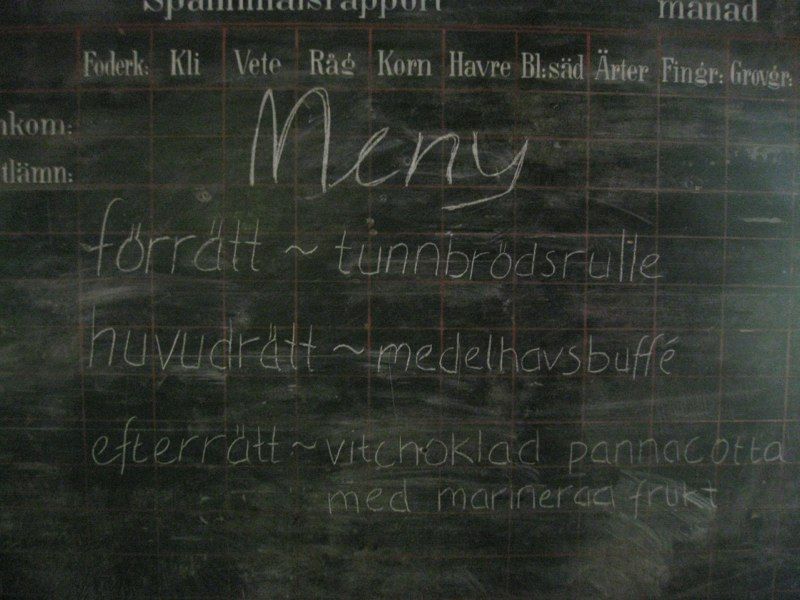 Spannmålsrapport månad
Foderk: Kli Vete Råg Korn Havre Bl:säd Ärter Fingr: Grovgr:
nkom:
tlämn:
Meny
förrätt ~ tunnbrödsrulle
huvudrätt ~ medelhavsbuffé
efterrätt ~ vitchoklad pannacotta
med marinerad frukt